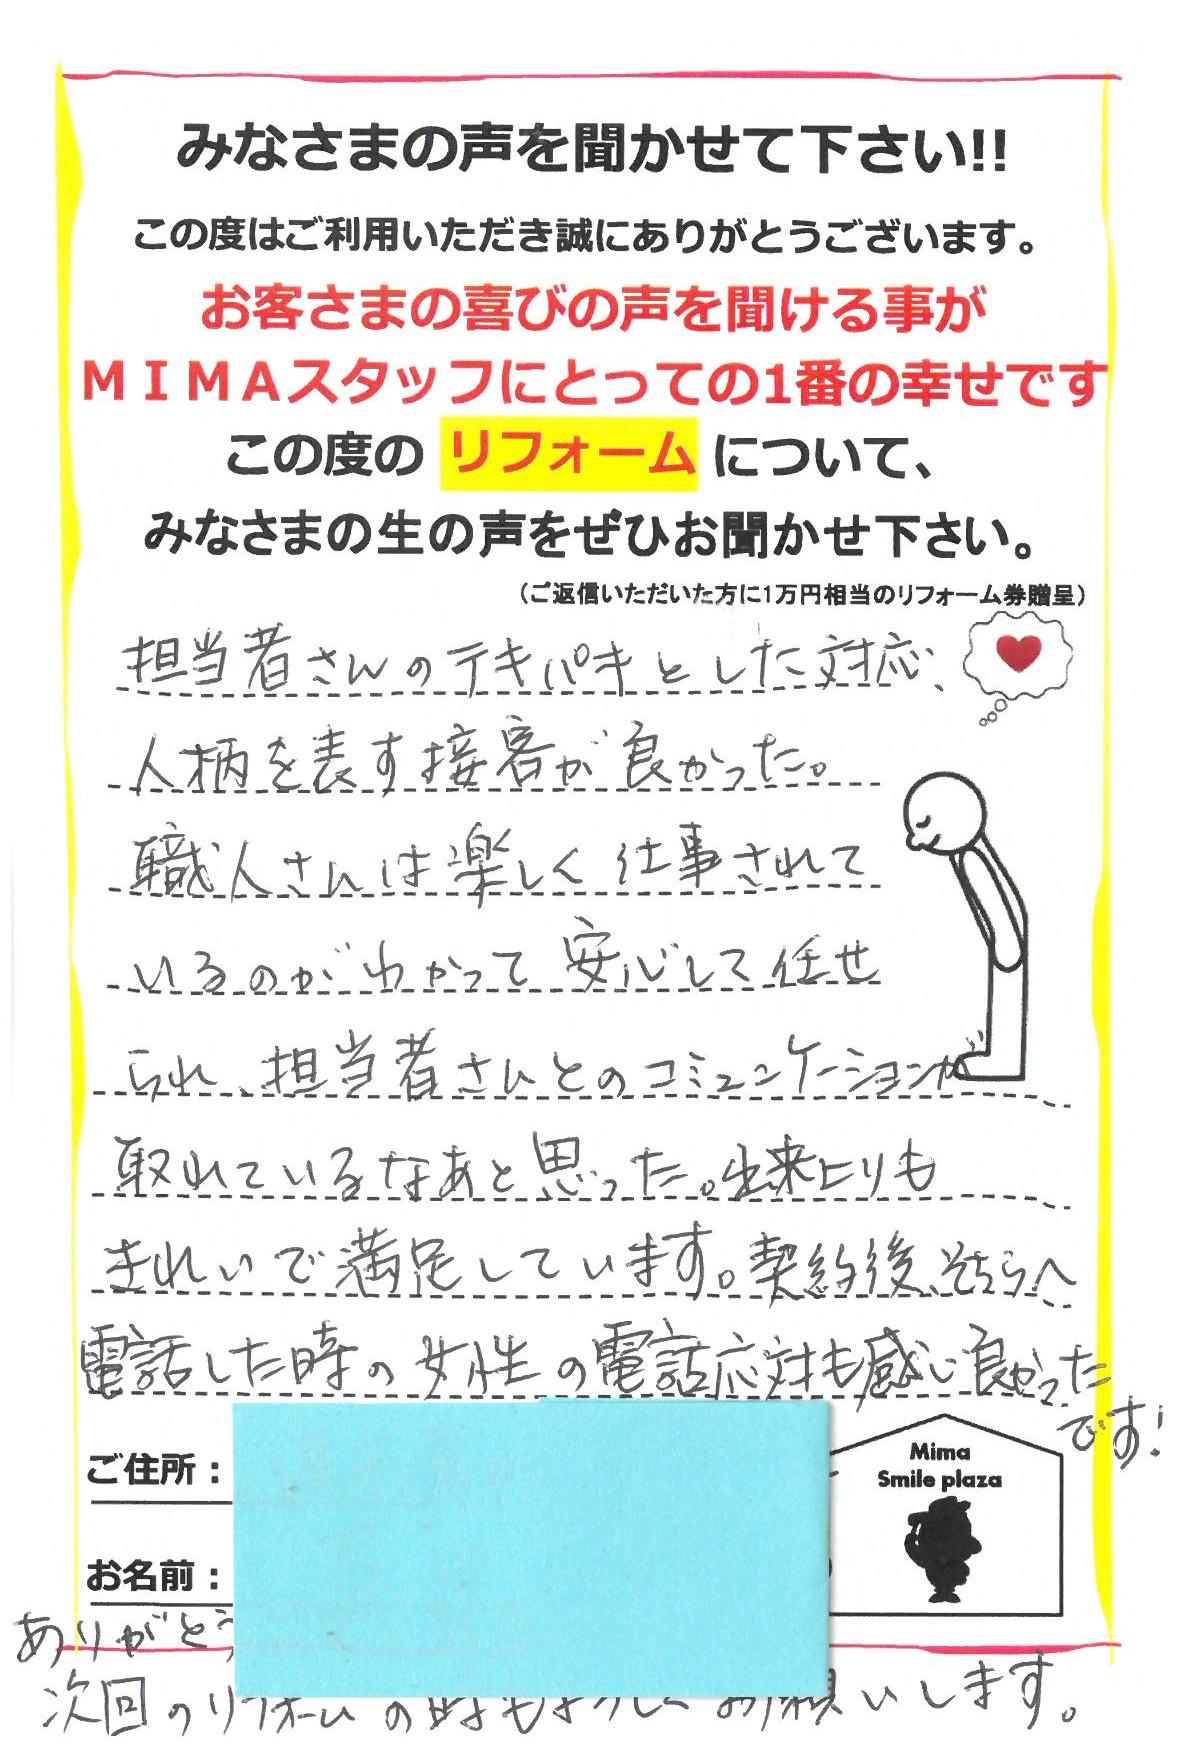 みなさまの声を聞かせて下さい!!
この度はご利用いただき誠にありがとうございます。
お客さまの喜びの声を聞ける事が
ＭＩＭＡスタッフにとっての1番の幸せです
この度の リフォーム について、
みなさまの生の声をぜひお聞かせ下さい。
（ご返信いただいた方に1万円相当のリフォーム券贈呈）
担当者さんのテキパキとした対応、
人柄を表す接客が良かった。
職人さんは楽しく仕事されて
いるのがわかって安心して任せ
られ、担当者さんとのコミュニケーションが
取れているなあと思った。出来上りも
きれいで満足しています。契約後、そちらへ
電話した時の女性の電話応対も感じ良かった
です!
ご住所：
Mima
Smile plaza
お名前：
ありがとう
次回のリフォームの時もよろしくお願いします。